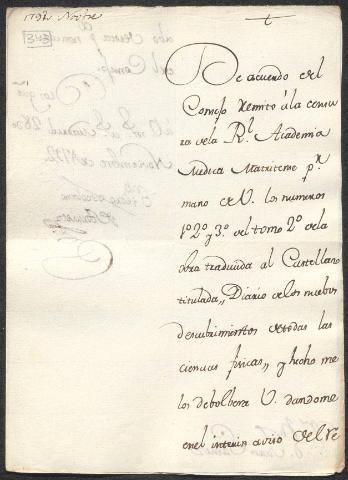 1792 Novbre
343
De acuerdo del
Consejo remito á la censu
ra de la Rl. Academia
Medica Matritense pr.
mano de V. los numeros
1º 2º y 3º del tomo 2º de la
obra traducida al Castellano
titulada,, Diario de los nuebos
descubrimientos de todas las
ciencias fisicas,, y hecho me
los debolbera V. dandome
en el interin aviso del re